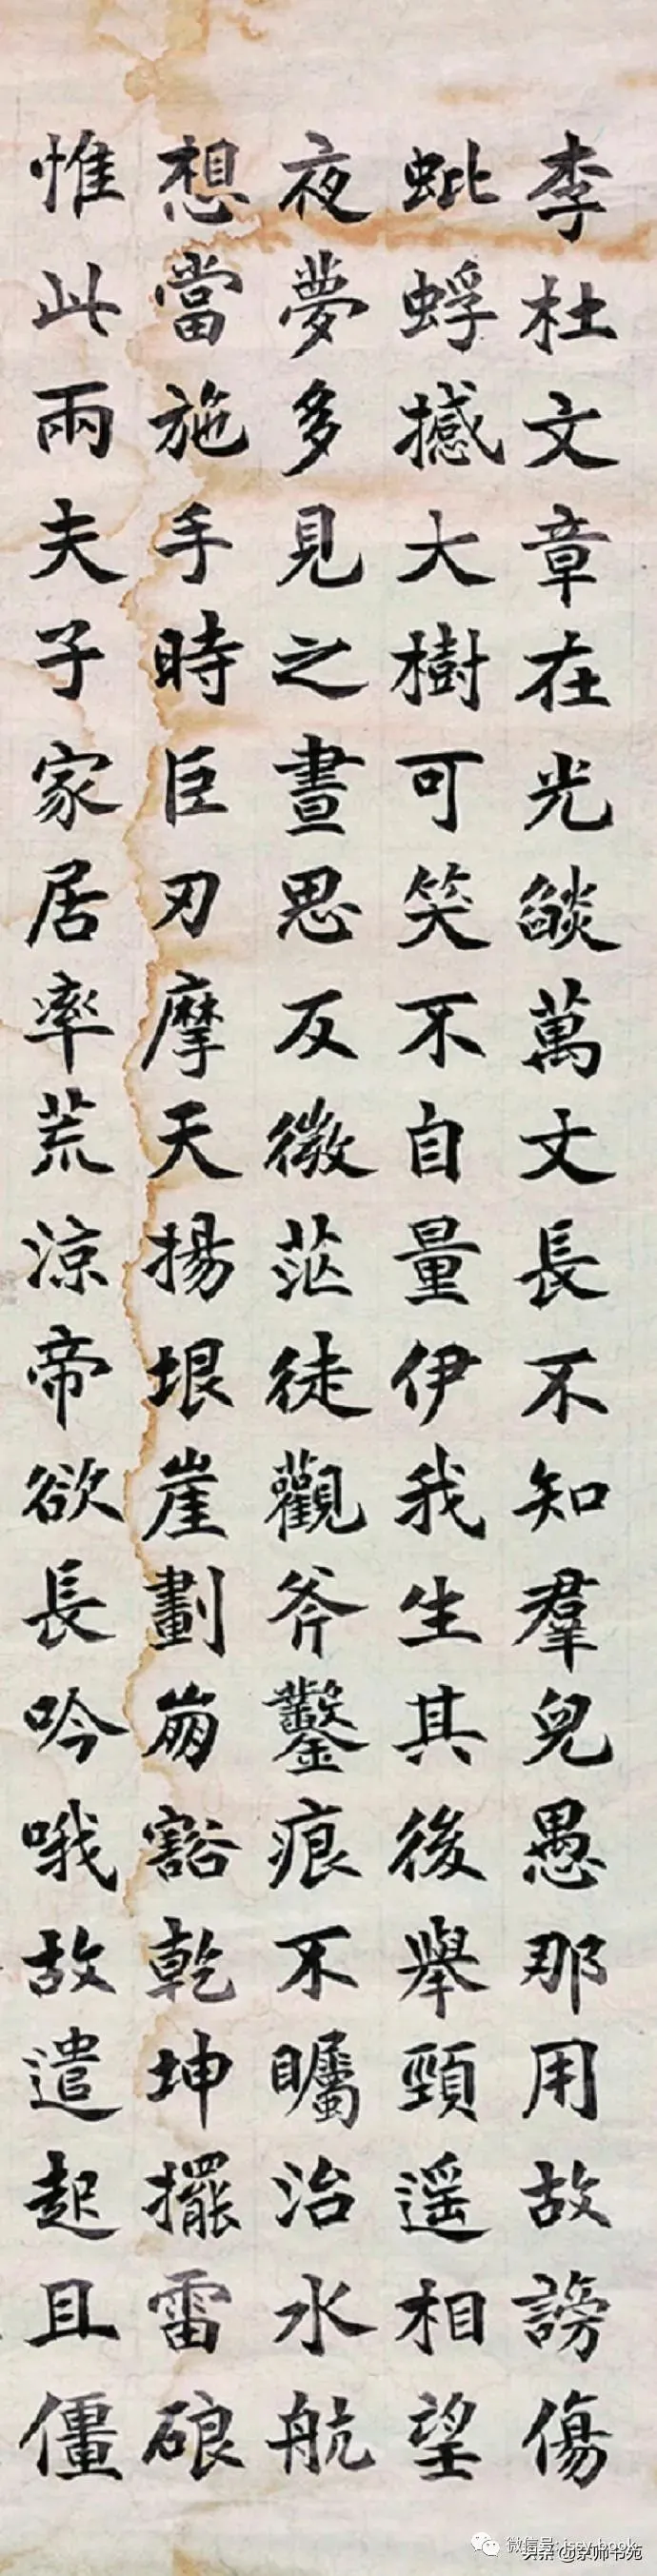 李杜文章在光燄萬丈長不知羣兒愚那用故謗傷
蚍蜉撼大樹可笑不自量伊我生其後舉頸遥相望
夜夢多見之晝思反微茫徒觀斧鑿痕不矚治水航
想當施手時巨刃摩天揚垠崖劃崩豁乾坤擺雷硠
惟此兩夫子家居率荒涼帝欲長吟哦故遣起且僵
微信号:
头条 @京师书苑